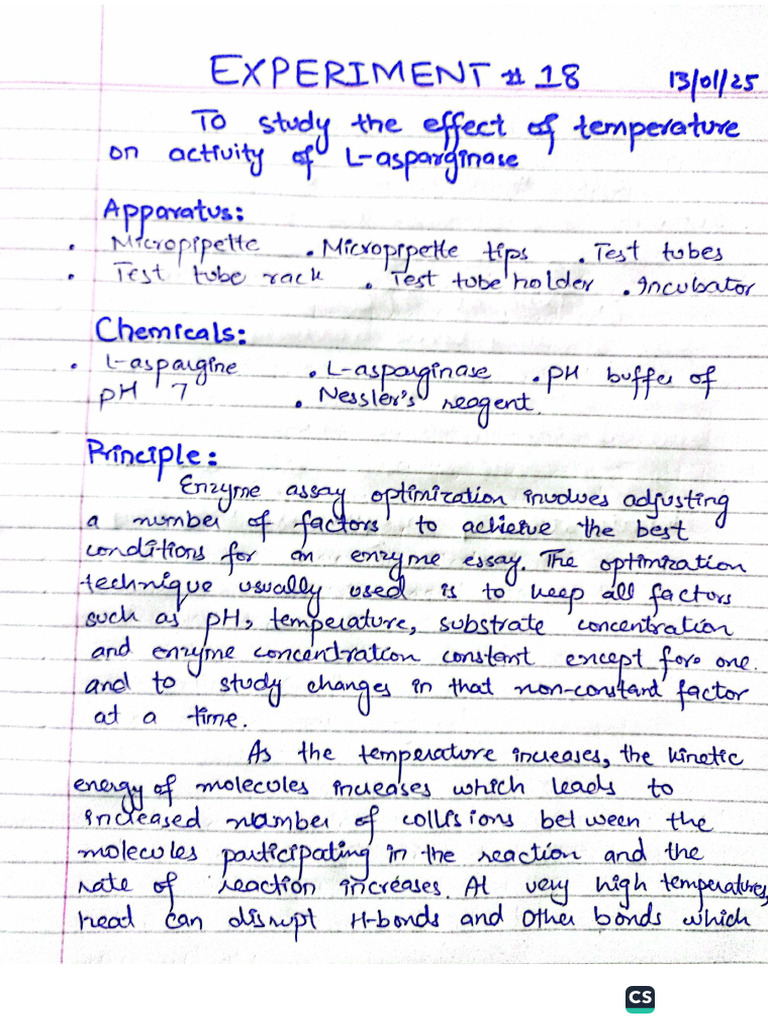 EXPERIMENT # 18 13/01/25
To study the effect of temperature
on activity of L-asparginase
Apparatus:
• Micropipette • Micropipette tips • Test tubes
• Test tube rack • Test tube holder • Incubator
Chemicals:
• L-aspargine • L-asparginase • pH buffer of
pH 7 • Nessler's reagent.
Principle:
Enzyme assay optimization involves adjusting
a number of factors to achieve the best
conditions for an enzyme essay. The optimization
technique usually used is to keep all factors
such as pH, temperature, substrate concentration
and enzyme concentration constant except for one.
and to study changes in that non-constant factor
at a time.
As the temperature increases, the kinetic
energy of molecules increases which leads to
increased number of collisions between the
molecules participating in the reaction and the
rate of reaction increases. At very high temperatures,
head can disrupt H-bonds and other bonds which
CS